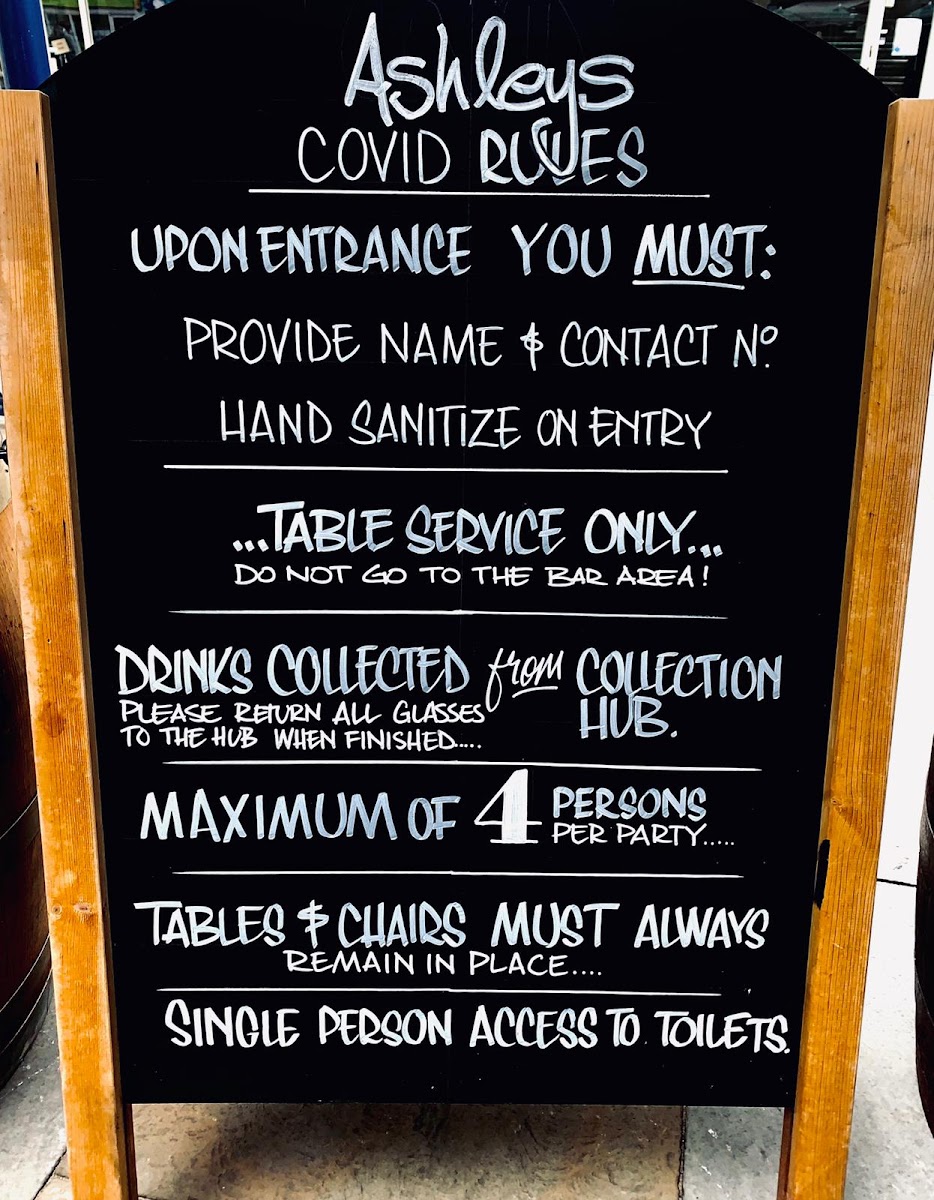 Ashleys
COVID RULES
UPON ENTRANCE YOU MUST:
PROVIDE NAME & CONTACT Nº
HAND SANITIZE ON ENTRY
...TABLE SERVICE ONLY...
DO NOT GO TO THE BAR AREA!
DRINKS COLLECTED from COLLECTION
HUB.
PLEASE RETURN ALL GLASSES
TO THE HUB WHEN FINISHED.....
MAXIMUM OF 4 PERSONS
PER PARTY.....
TABLES & CHAIRS MUST ALWAYS
REMAIN IN PLACE....
SINGLE PERSON ACCESS TO TOILETS.